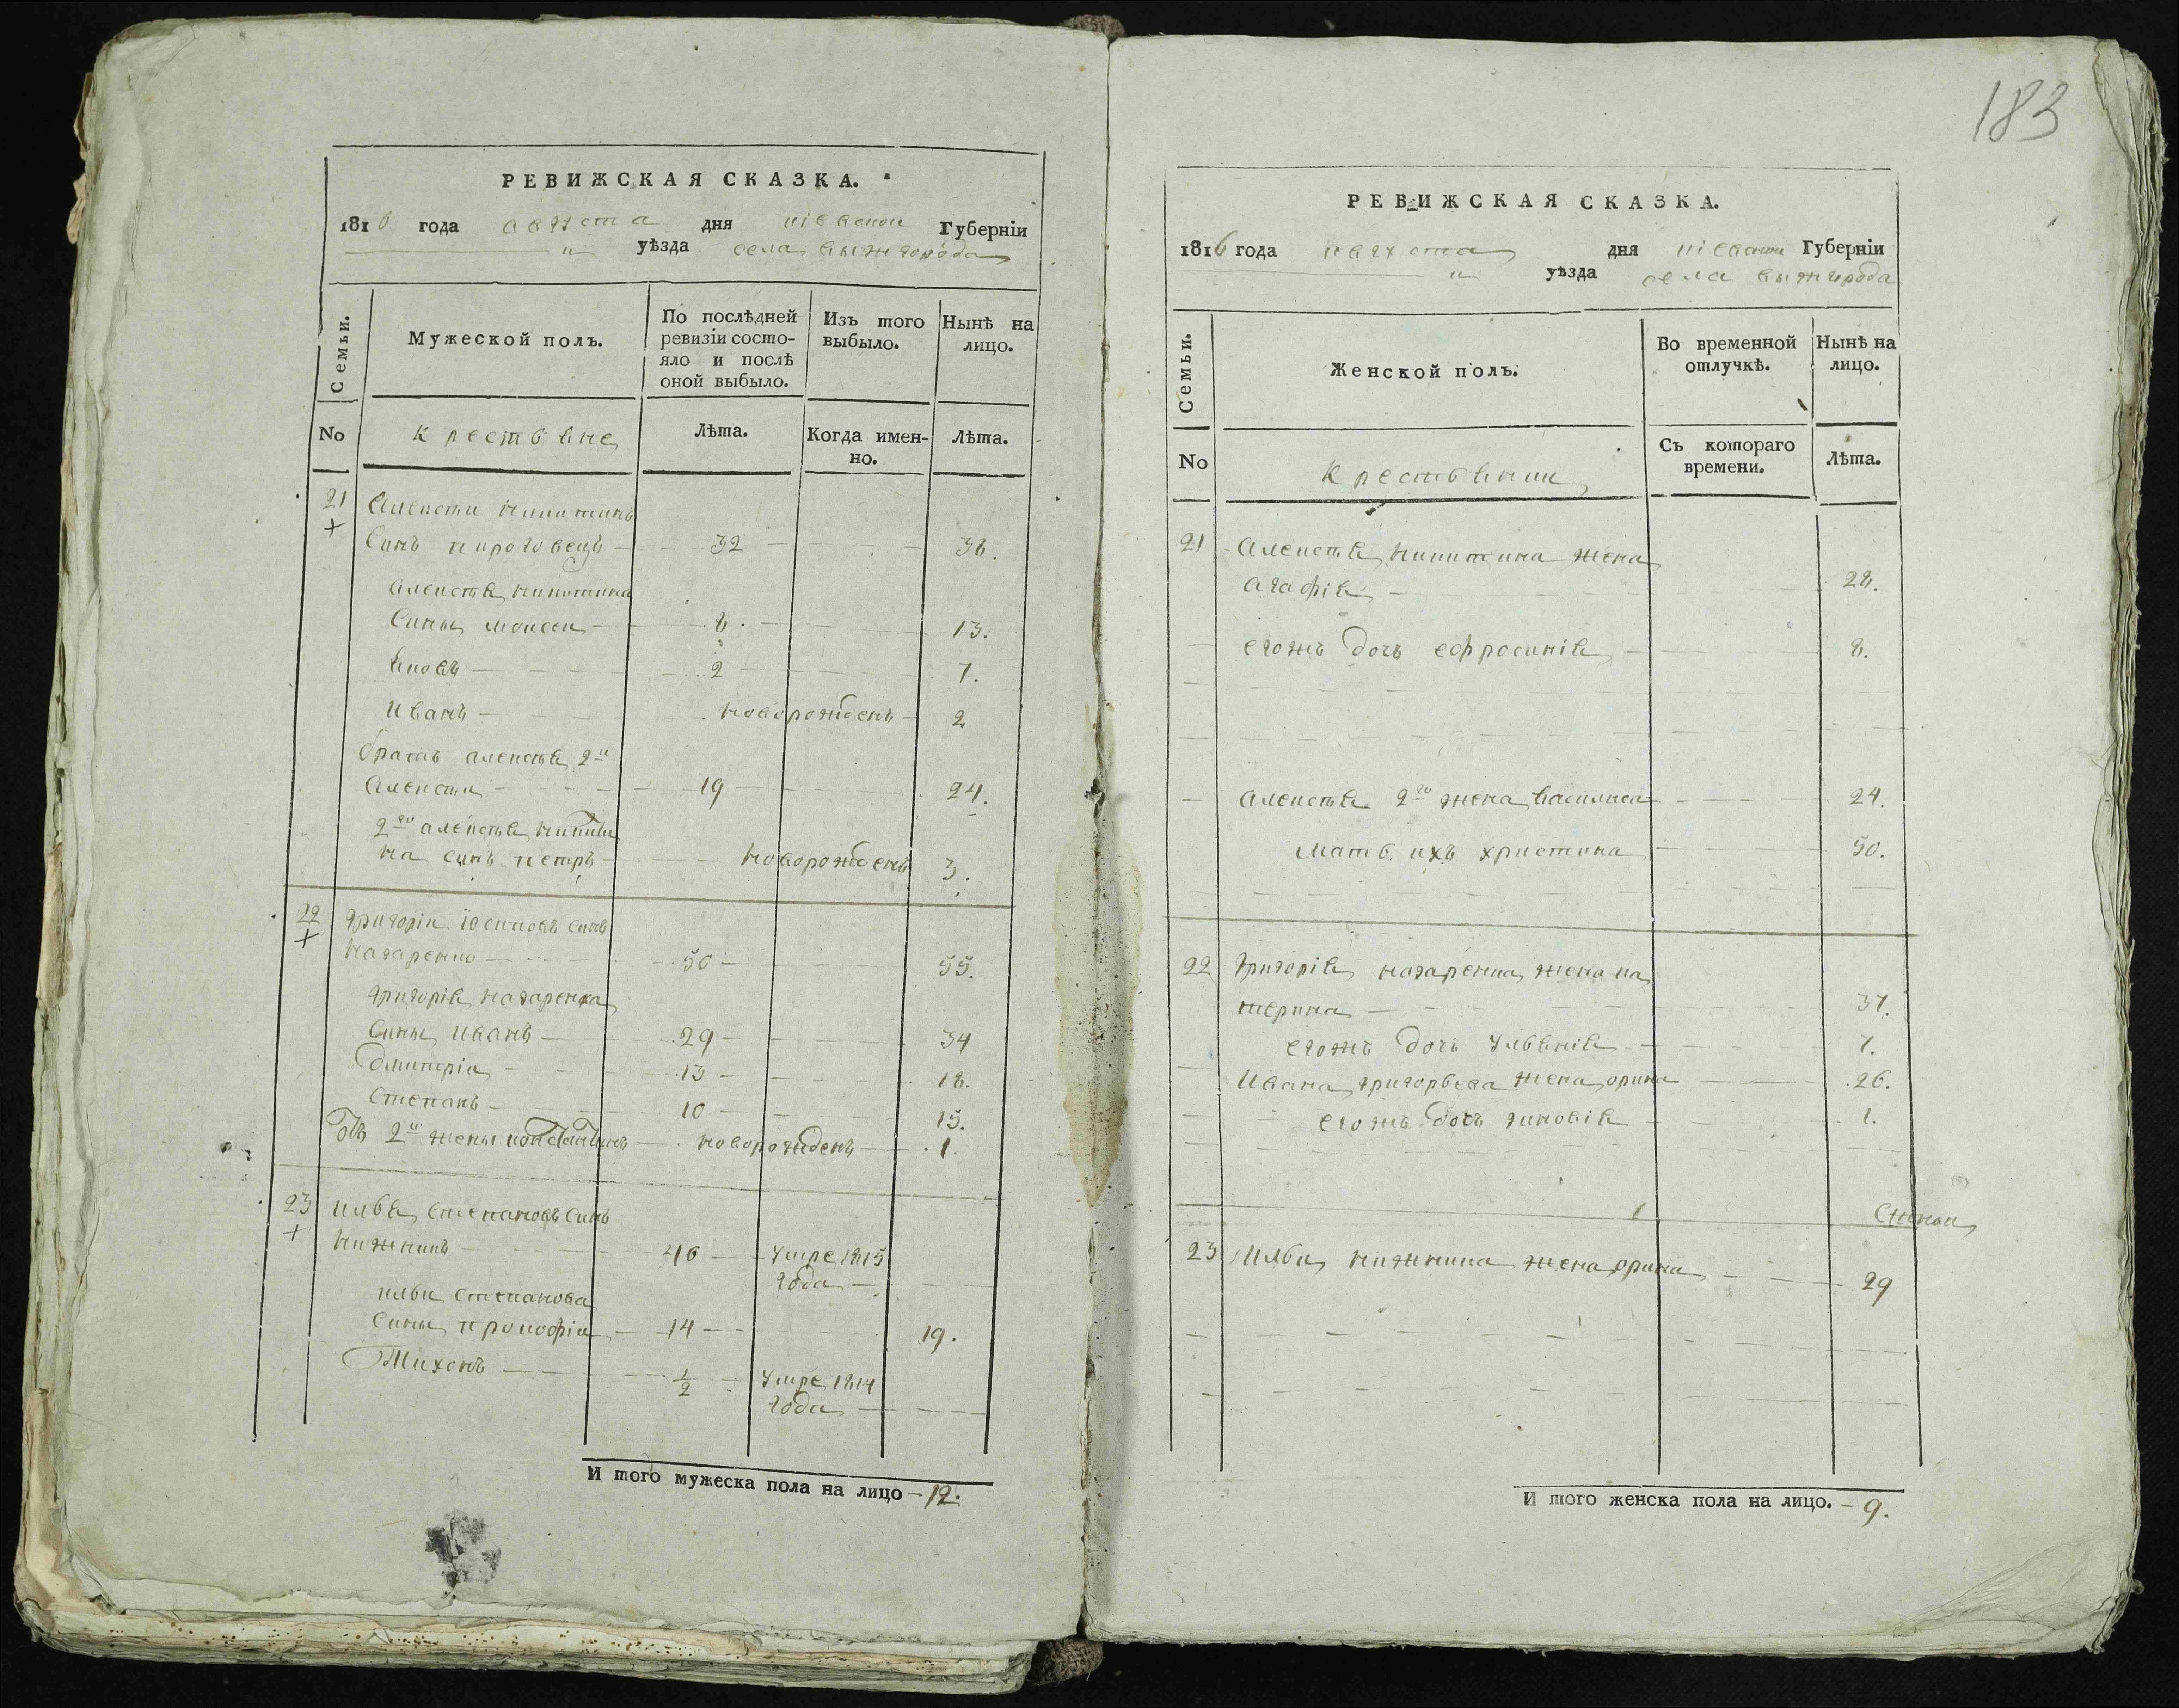 183
РЕВИЖСКАЯ СКАЗКА.
1816 года августа дня кіевской Губерніи
уѣзда села вышгорода
Семьи.
Мужеской полъ.
По послѣдней ревизіи состо-
яло и послѣ
оной выбыло.
Изъ того
выбыло.
Нынѣ на
лицо.
No
крестьяне
Лѣта.
Когда имен-
но.
Лѣта.
21 Алексѣи никитинъ
Синъ пироговецъ 32 36.
Алексѣя никитина
Сины моисеи 8. 13.
Яковъ 2 7.
Иванъ новорожденъ 2
братъ алексѣя 2й
Алексѣи 19 24.
2го алексѣя никити
на синъ петръ новорожденъ 3.
22 григоріи іосиповъ синъ
назаренко 50 55.
григорія назаренка
Сины иванъ 29 34
дмитріи 13 18.
Степанъ 10 15.
Отъ 2й жены константинъ новорожденъ 1.
23 илья степановъ синъ
нижникъ 46 умре 1815
года
ильи степанова
Сины прокофіи 14 19.
Тихонъ 1/2 умре 1814
года
И того мужеска пола на лицо 12.
РЕВИЖСКАЯ СКАЗКА.
1816 года августа дня кіевской Губерніи
уѣзда села вышгорода
Семьи.
Женской полъ.
Во временной
отлучкѣ.
Нынѣ на
лицо.
No
крестьянки
Съ котораго
времени.
Лѣта.
21 Алексѣя никитина жена
агафія 28.
егожъ дочь ефросинія 8.
Алексѣя 2го жена василиса 24.
мать ихъ христина 50.
22 григорія назаренка жена ка
терина 37.
егожъ дочь ульянія 7.
Ивана григорьева жена орина 26.
егожъ дочь зиновія 1.
23 Ильи нижника жена орина 29
И того женска пола на лицо. 9.